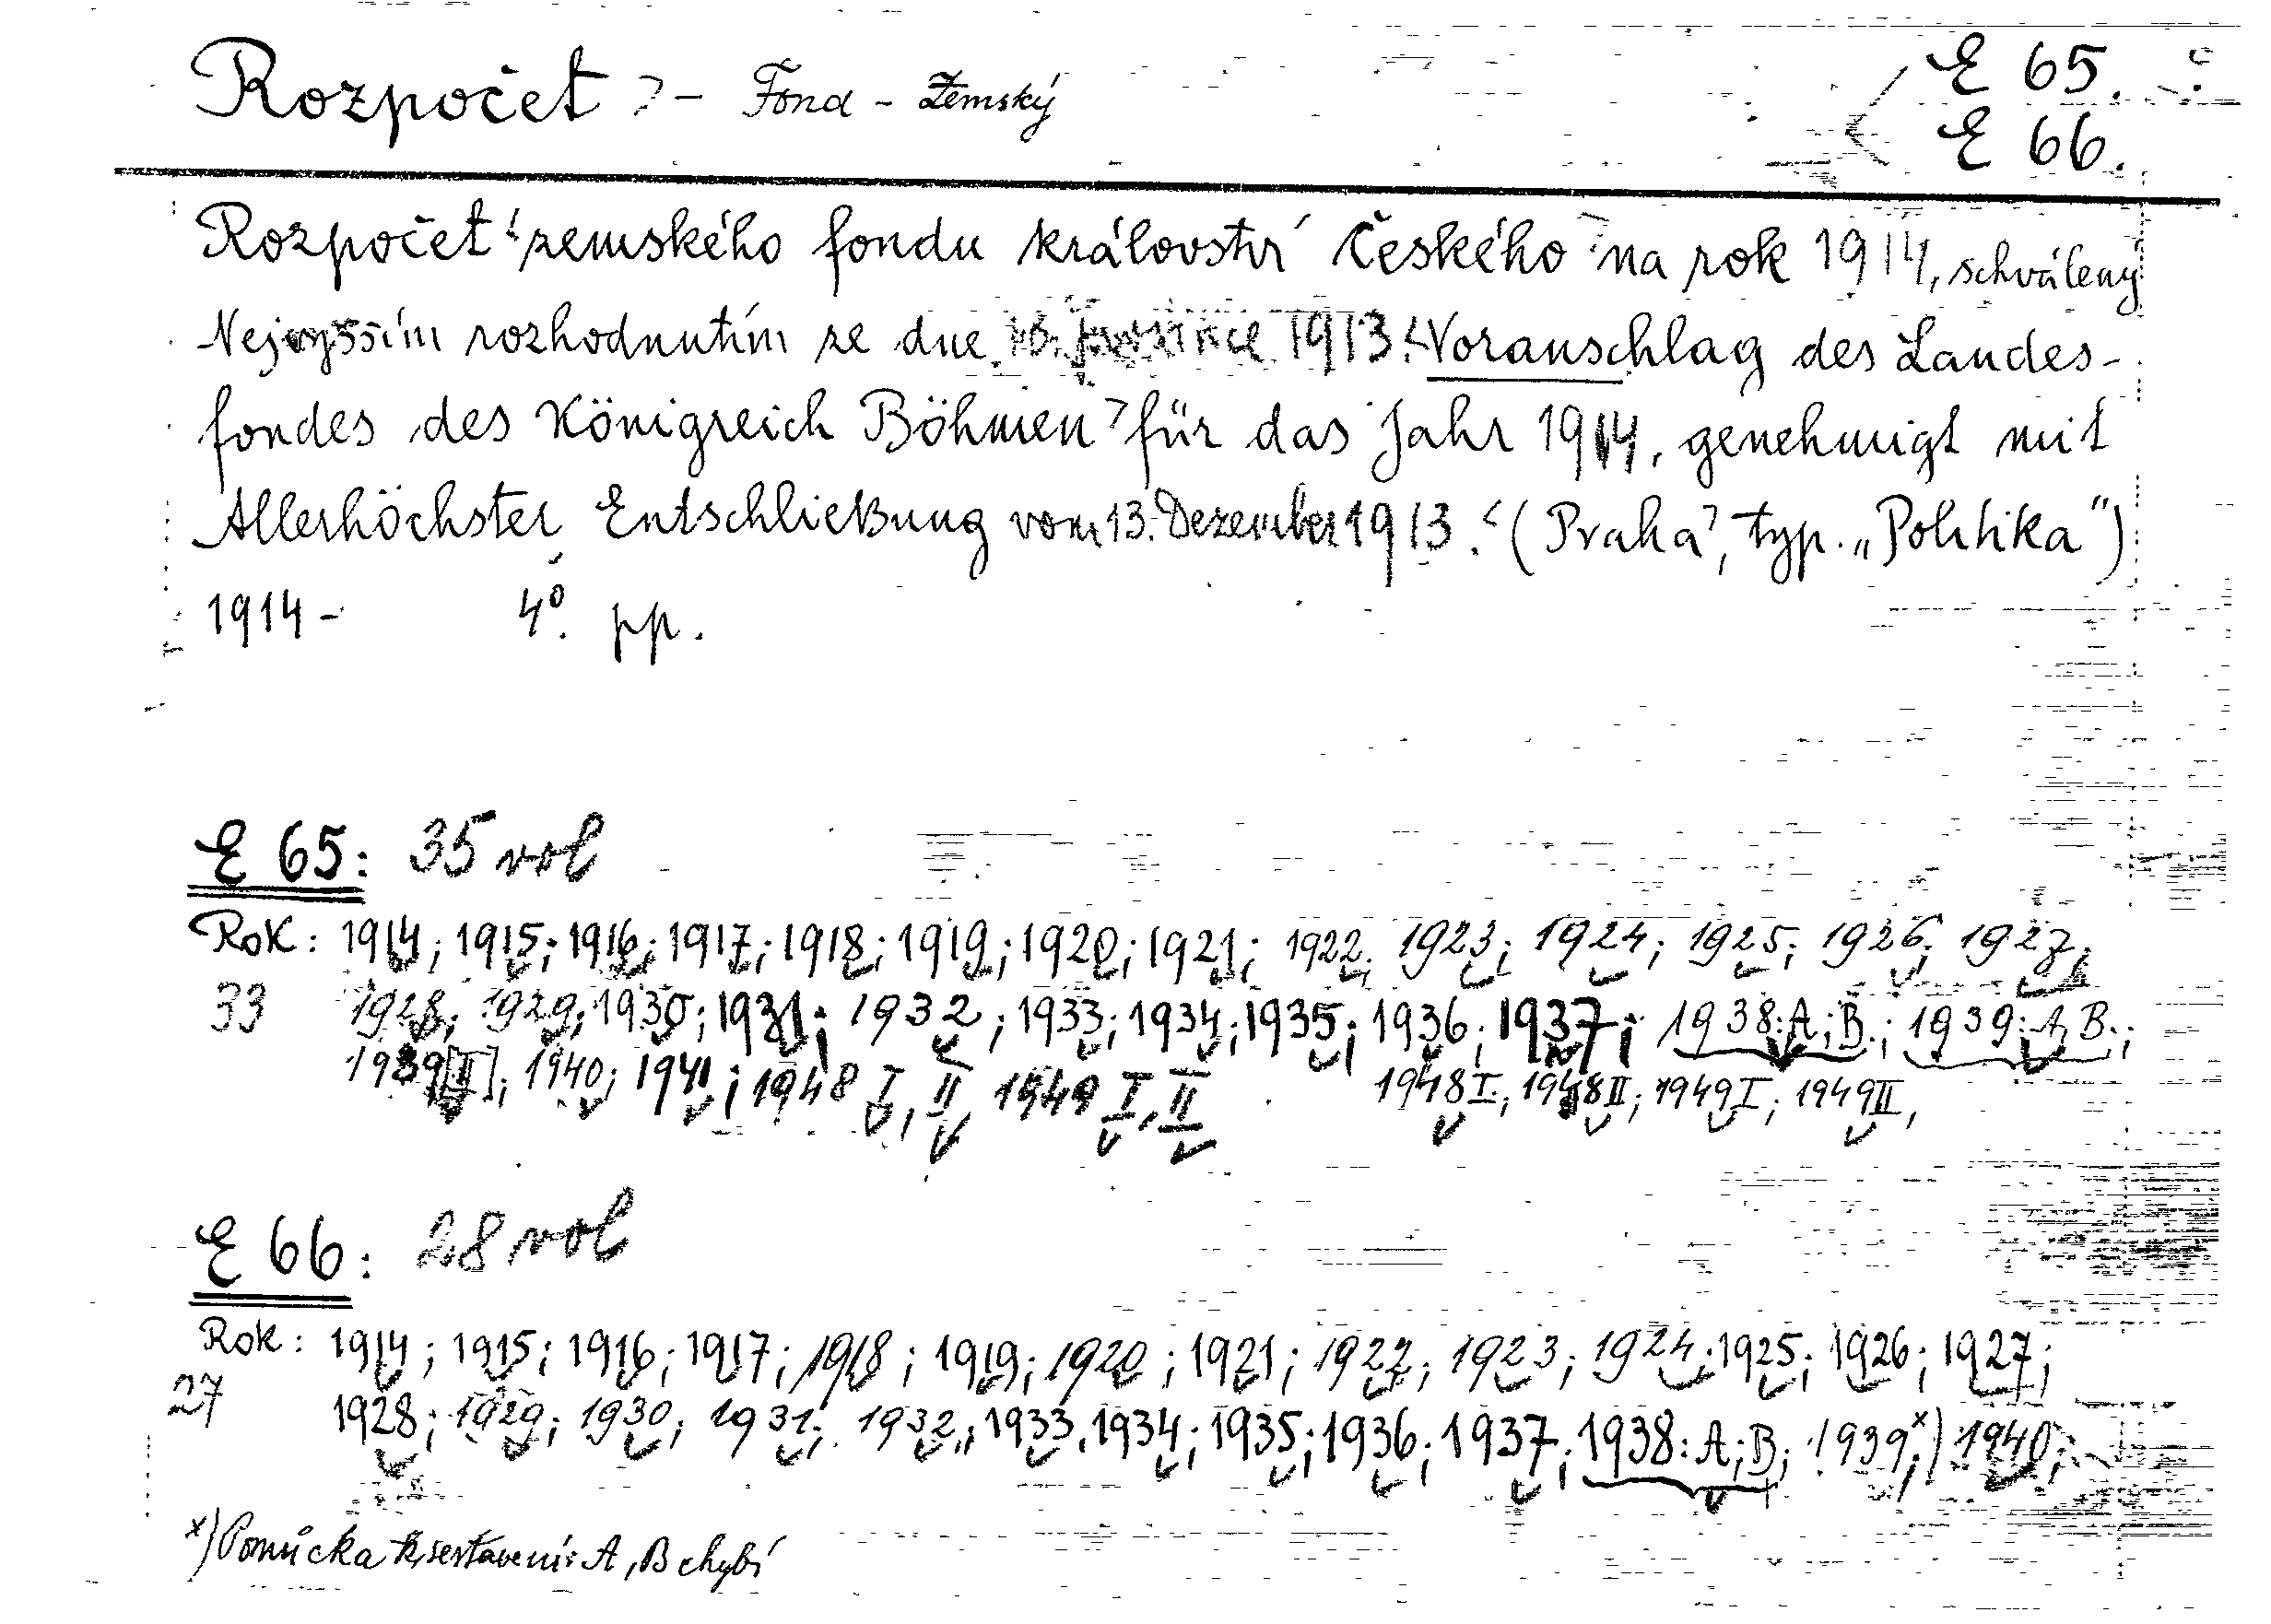 Rozpočet ? - Fond - Zemský
E 65.
E 66.
Rozpočet zemského fondu království Českého na rok 1914, schválený
Nejvyšším rozhodnutím ze dne 13. prosince 1913. Voranschlag des Landes-
fondes des Königreich Böhmen für das Jahr 1914, genehmigt mit
Allerhöchster Entschließung vom 13. Dezember 1913. (Praha, typ. „Politika")
1914 - 4°. pp.
E 65: 35 vol
Rok: 1914; 1915; 1916; 1917; 1918; 1919; 1920; 1921; 1922; 1923; 1924; 1925; 1926; 1927;
33 1928; 1929; 1930; 1931; 1932; 1933; 1934; 1935; 1936; 1937; 1938: A; B.; 1939: A, B.;
1939[II]; 1940; 1941; 1948 I, II, 1949 I, II 1948 I.; 1948 II; 1949 I; 1949 II,
E 66: 28 vol
Rok: 1914; 1915; 1916; 1917; 1918; 1919; 1920; 1921; 1922; 1923; 1924; 1925; 1926; 1927;
27 1928; 1929; 1930; 1931; 1932; 1933, 1934; 1935; 1936; 1937; 1938: A; B; 1939;x) 1940;
x) Pomůcka k sestavení: A, B chybí